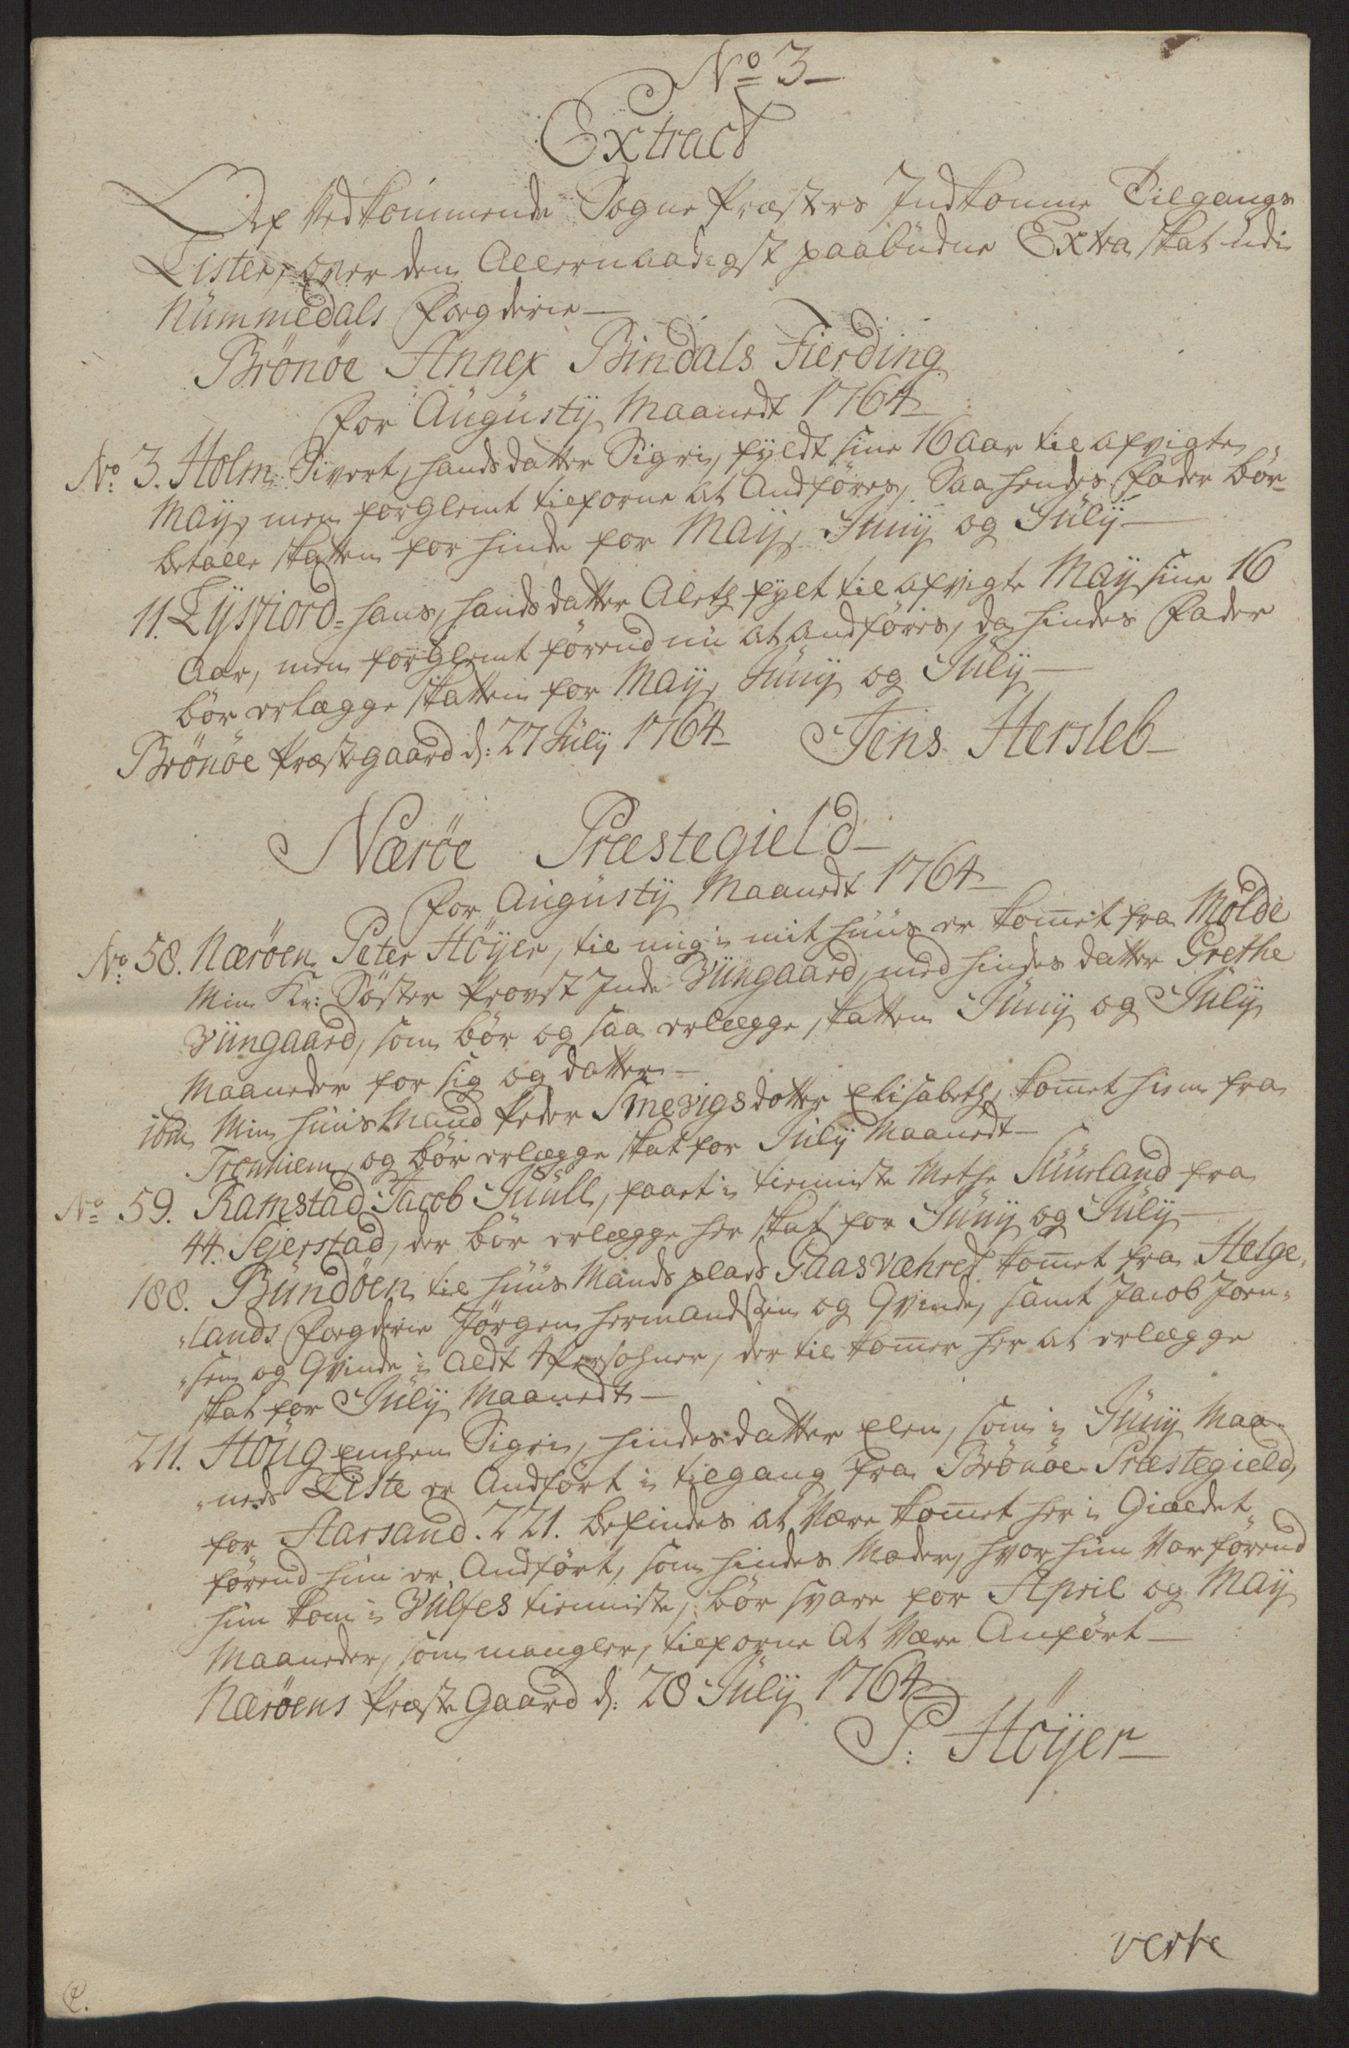 No 3
Extract
Af Vedkommende Sogne Præsters Indkomne Tilgangs
Lister, over den Allernaadigst paabudne Extra skat udi
Nummedals Fogderie
Brönöe Annex Bindals Fierding
For Augustij Maanedt 1764
No: 3. Holm Sivert, hands datter Sigri, fyldt sine 16 aar til afvigte
Maij, men forglemt tilforne at Andföres, Saa hendes Fader bör
betalle skatten for hinde for Maij, Junij og Julij
11. Lysfiord Hans, hands datter Aleth fylt til afvigte Maij sine 16
Aar, men forglemt förend nu at andföres, da hindes Fader
bör erlægge skatten for Maij, Junij og Julij
Brönöe Præstegaard d: 27 Julij 1764 Jens Hersleb
Næröe Præstegield
For Augustij Maanedt 1764
No: 58. Næröen Peter Höyer, til mig i mit huus er komet fra Molde
Min Kr: Söster Provst Inde Bungaard, med hindes datter Grethe
Bungaard, som bör og saa erlægge skatten Junij og Julij
Maaneder for sig og datter
ibm Min huusmand Peder Smevigs dotter Elisabeth, komet hiem fra
Tronhiem, og bör erlægge skat for Julij Maanedt
No 59. Ramstad Jacob Juull, faaet i tienniste Methe Suurland fra
44. Sejerstad, der bör erlegge her skat for Junij og Julij
188. Bundöen til huus Mands plads Gaasvæhret komet fra Helge-
lands Fogderie Jörgen Hermandsen og Qvinde, samt Jacob Joen-
sen og Qvinde i aldt 4 Persohner, der til komer her at erlægge
skat for Julij Maanedt
211. Höug Enchen Sigri, hindes datter Elen, som i Junij Maa-
neds Liste er Andfört i tilgang fra Brönöe Præstegield,
for Aarsand. 221. befindes at Være komet her i Gieldet
förend hun er Andfört, som hindes Moder, hvor hun Var förend
hun kom i Vulfes tienniste, bör svare for April og Maij
Maaneder, som mangler, tilforne at Være Anfört
Næröens Præste Gaard d: 28 Julij 1764
P: Höyer
verte